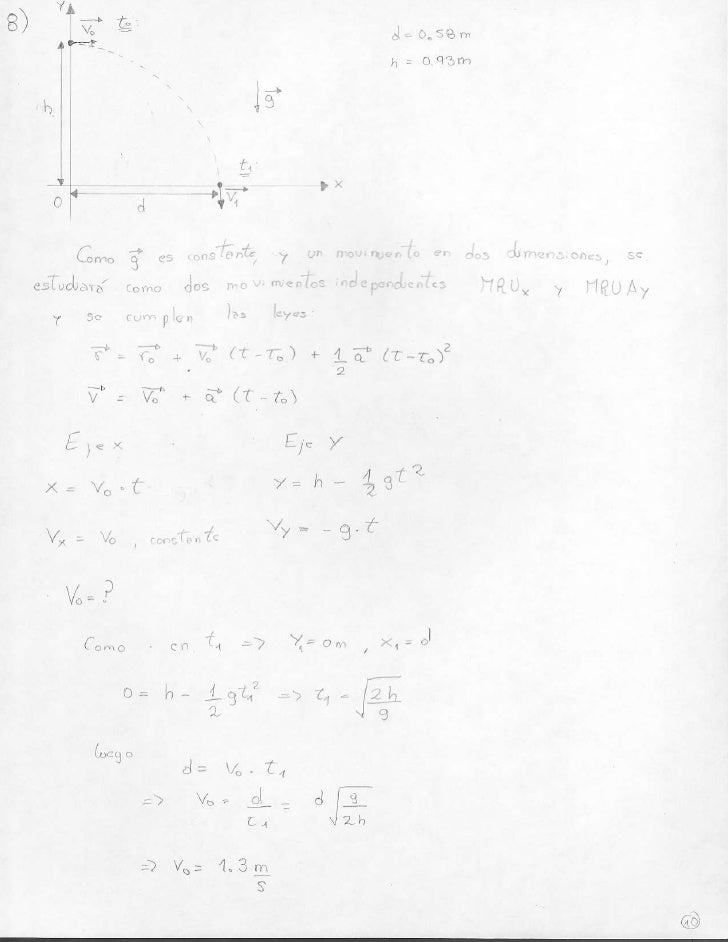 8)
Y
V₀ t₀:
d = 0.58m
h = 0.93m
h
g
t₁:
X
O
d
V₁
Como g⃗ es constante, y un movimiento en dos dimensiones, se
estudiará como dos movimientos independientes MRUx y MRUAy
y se cumplen las leyes:
r⃗ = r⃗₀ + V⃗₀ (t-t₀) + 1/2 a⃗ (t-t₀)²
v⃗ = V⃗₀ + a⃗ (t-t₀)
Eje x Eje Y
x = V₀ · t y = h - 1/2 gt²
Vx = V₀, constante Vy = - g·t
V₀ = ?
Como en t₁ => Y₁ = 0m, x₁ = d
0 = h - 1/2 gt₁² => t₁ = √(2h/g)
luego
d = V₀ · t₁
=> V₀ = d/t₁ = d √(g/2h)
=> V₀ = 1.3 m/s
10